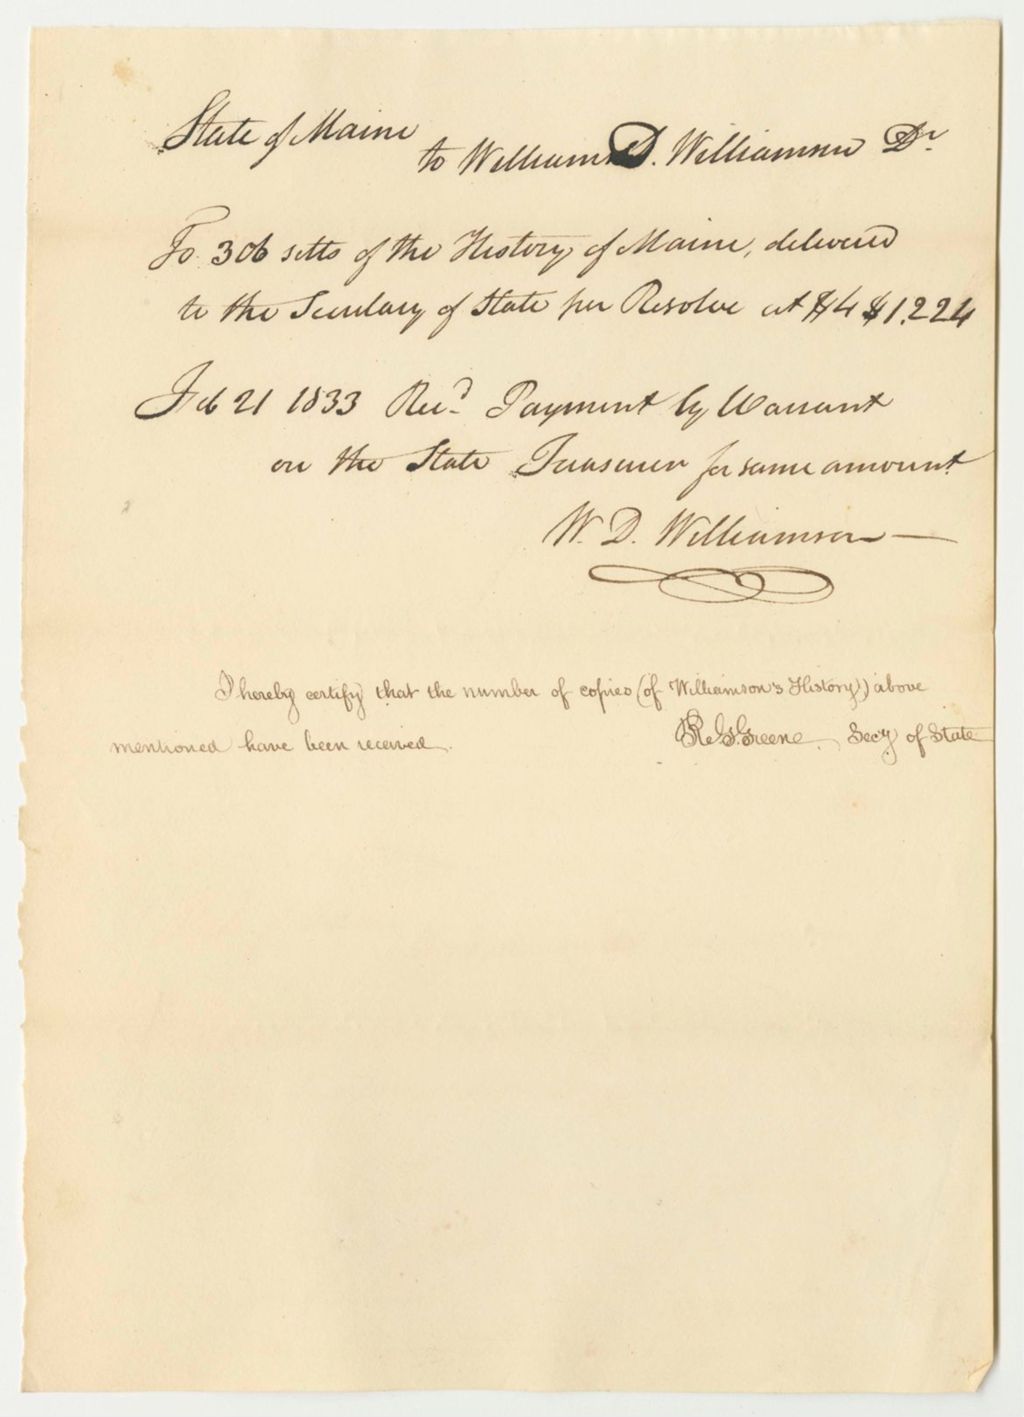 State of Maine
to William D. Williamson Dr
To 306 setts of the History of Maine, delivered
to the Secretary of State per Resolve at $4 $1,224
Feb 21 1833 Recd Payment by Warrant
on the State Treasurer for same amount
W. D. Williamson
I hereby certify that the number of copies (of Williamson's History) above
mentioned have been received.
R. G. Greene, Secy of State